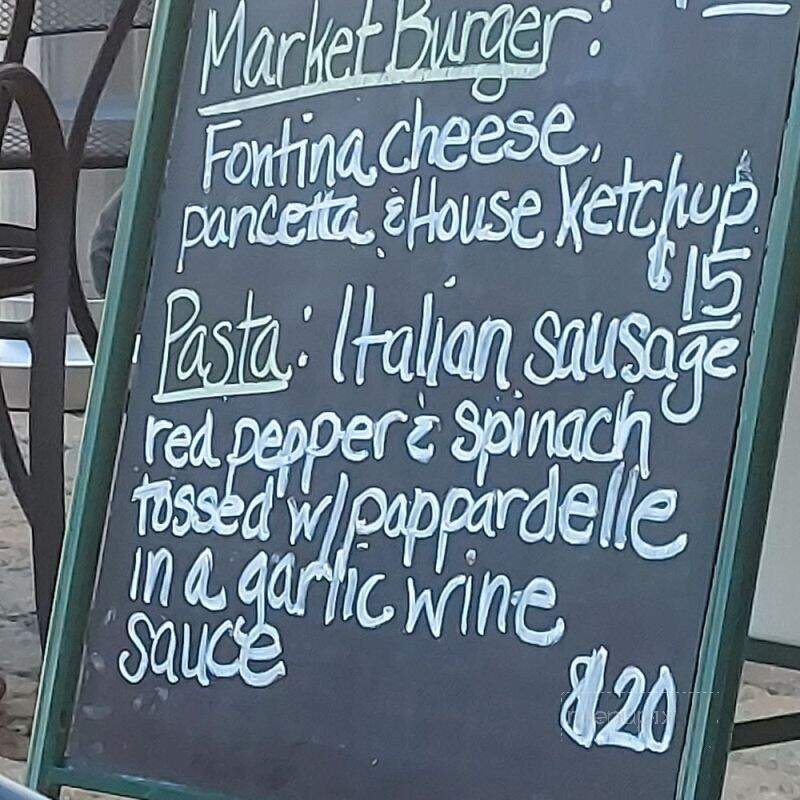 Market Burger:
Fontina cheese,
pancetta & House Ketchup
$15
Pasta: Italian sausage
red pepper & spinach
tossed w/ pappardelle
in a garlic wine
sauce
$20
menupix